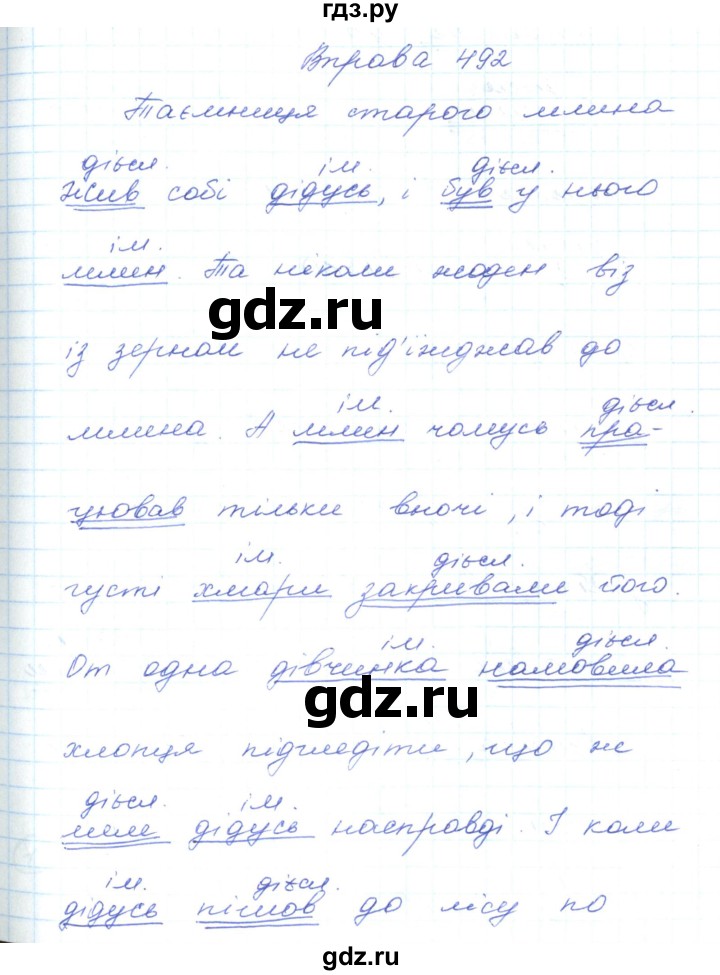 гдз.ру
Вправа 492
Таємниця старого млина
дієсл. ім. дієсл.
Жив собі дідусь, і був у нього
ім.
млин. Та ніколи жоден віз
gdz.ru
із зерном не під'їжджав до
ім. дієсл.
млина. А млин чомусь пра-
цював тільки вночі, і тоді
ім. дієсл.
густі хмари закривали його.
ім. дієсл.
От одна дівчинка намовила
gdz.ru
хлопця підгледіти, що ж
дієсл. ім.
меле дідусь насправді. І коли
ім. дієсл.
дідусь пішов до лісу по
gdz.ru